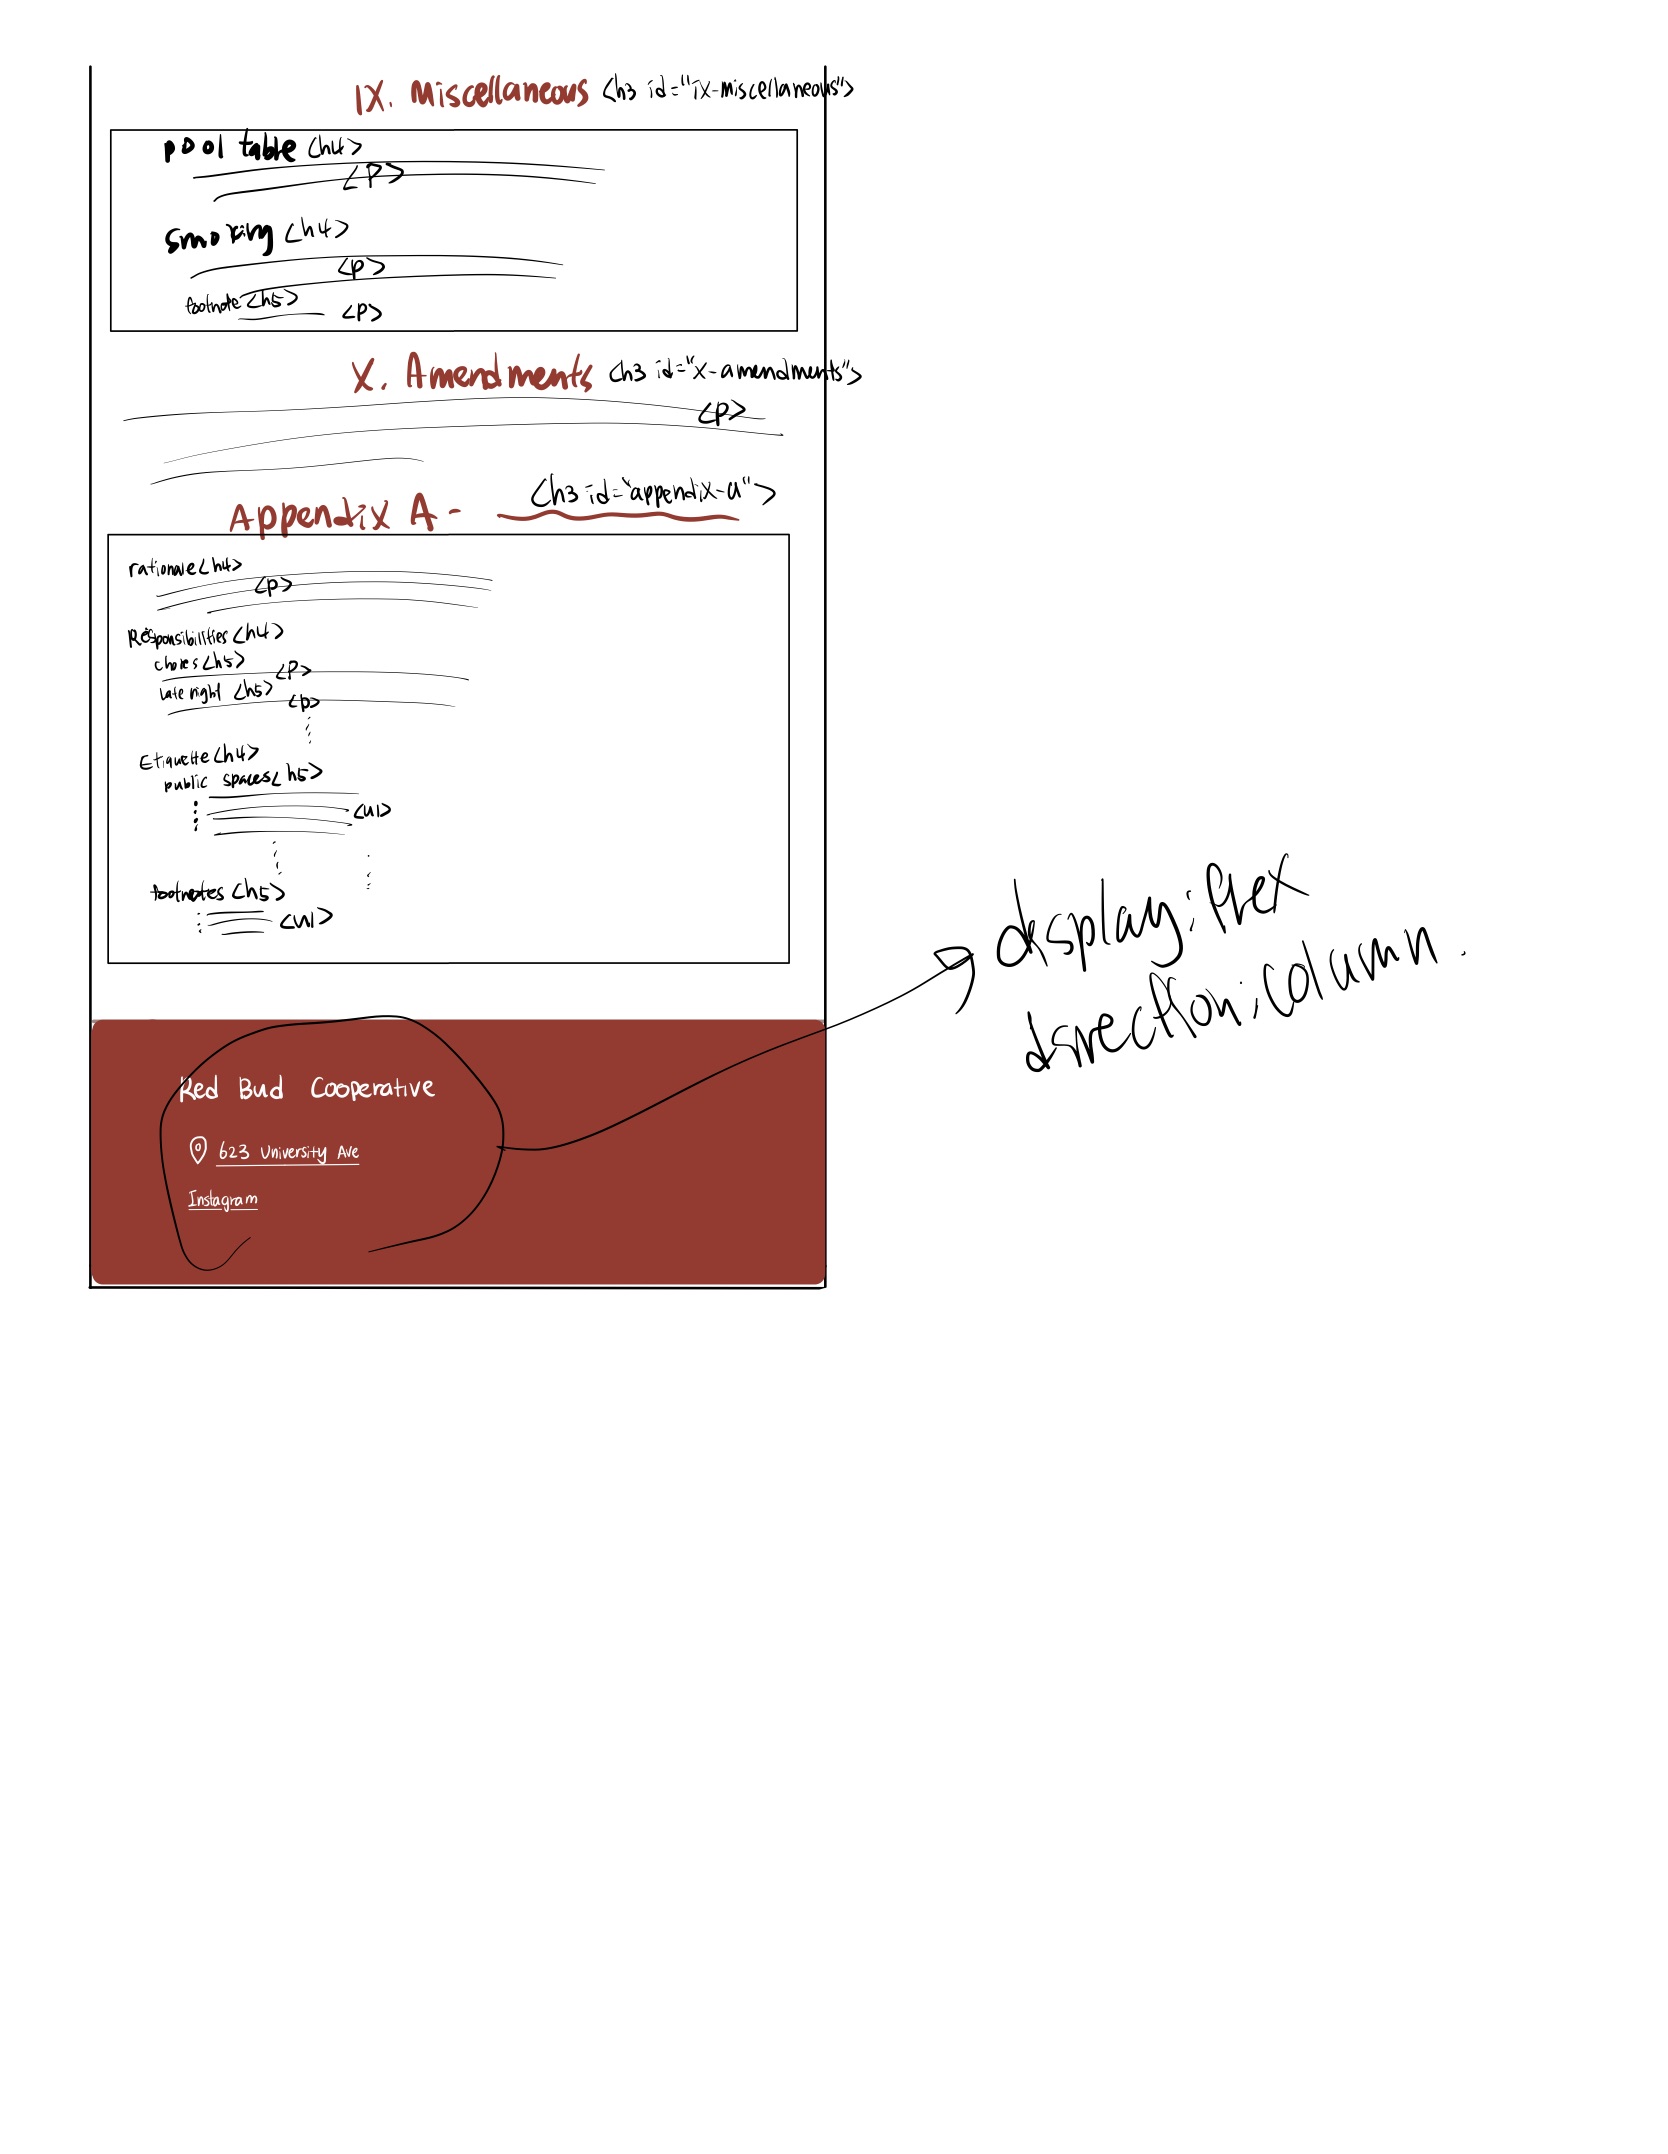 IX. Miscellaneous <h3 id="ix-miscellaneous">
pool table <h4>
<P>
smoking <h4>
<p>
footnote <h5>
<p>
X. Amendments <h3 id="x-amendments">
<p>
Appendix A - <h3 id="appendix-a">
rationale <h4>
<p>
Responsibilities <h4>
chores <h5>
<P>
late night <h5>
<p>
Etiquette <h4>
public spaces <h5>
<ul>
footnotes <h5>
<ul>
display: flex
direction: column.
Red Bud Cooperative
623 University Ave
Instagram